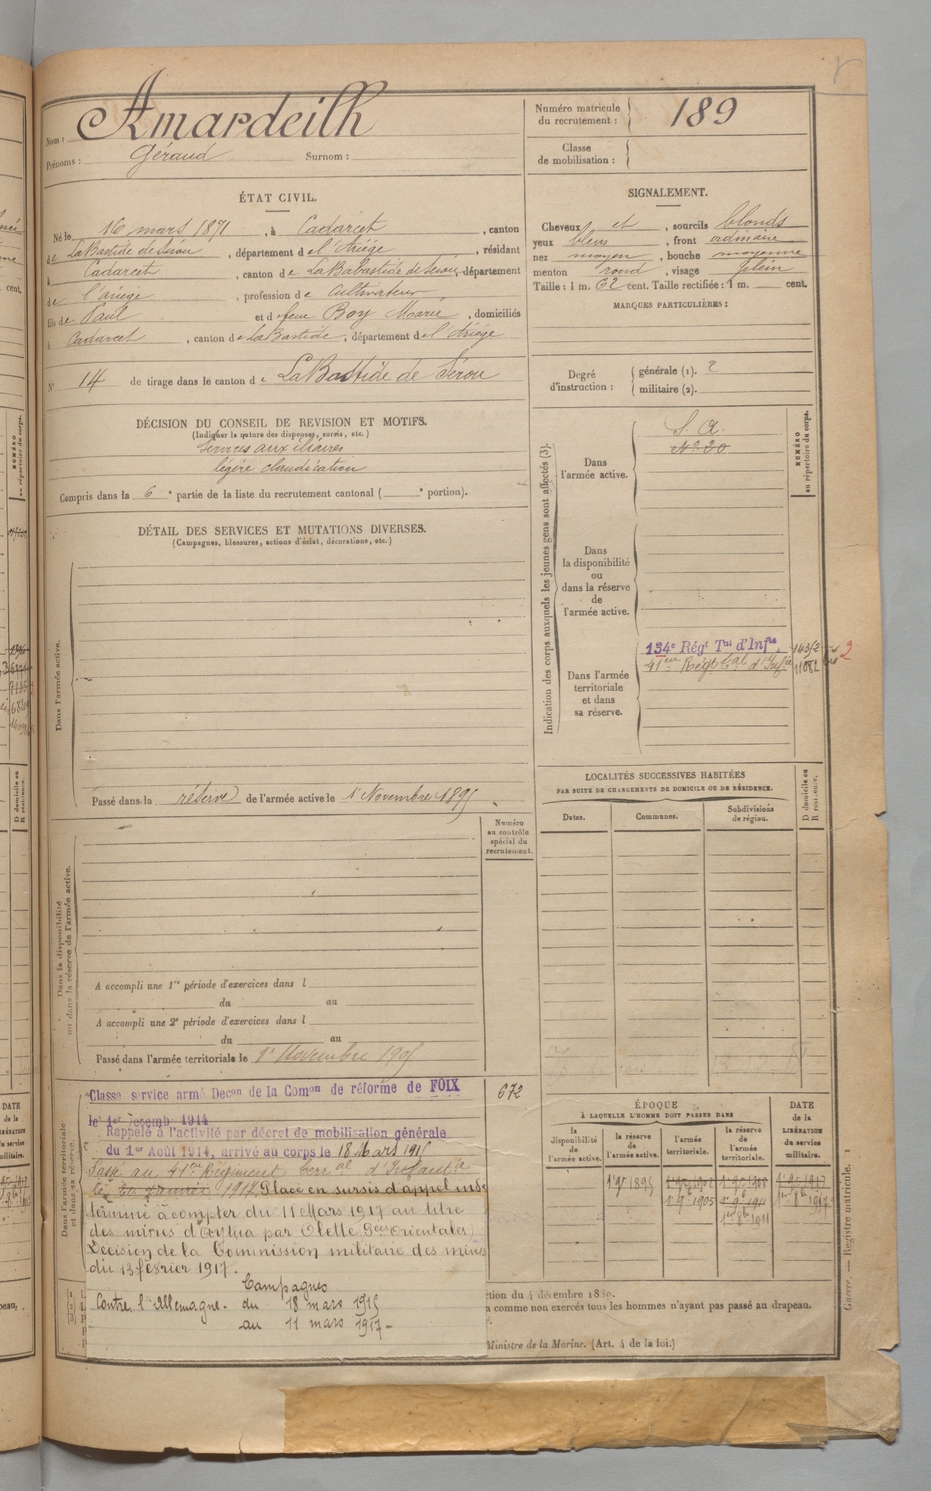 Nom : Amardeilh
Prénoms : Géraud Surnom :
Numéro matricule du recrutement : 189
Classe de mobilisation :
ÉTAT CIVIL.
Né le 16 mars 1871, à Cadarcet, canton
de LaBastide de Sérou, département de l'Ariège, résidant
à Cadarcet, canton de LaBabastide de Serou, département
de l'ariège, profession de Cultivateur
fils de Paul et de feue Boy Marie, domiciliés
à Cadarcet, canton de LaBastide, département de l'Ariège
N° 14 de tirage dans le canton de LaBastide de Sérou
SIGNALEMENT.
Cheveux et, sourcils blonds
yeux bleus, front ordinaire
nez moyen, bouche moyenne
menton rond, visage plein
Taille : 1 m. 62 cent. Taille rectifiée : 1 m. cent.
MARQUES PARTICULIÈRES :
Degré d'instruction : générale (1). 2
militaire (2).
DÉCISION DU CONSEIL DE REVISION ET MOTIFS.
(Indiquer la nature des dispenses, sursis, etc.)
Services auxiliaires
légère claudication
Compris dans la 6e partie de la liste du recrutement cantonal ( e portion).
DÉTAIL DES SERVICES ET MUTATIONS DIVERSES.
(Campagnes, blessures, actions d'éclat, décorations, etc.)
Dans l'armée active.
Passé dans la réserve de l'armée active le 1 Novembre 1895
Indication des corps auxquels les jeunes gens sont affectés (3).
NUMÉRO au répertoire du corps.
Dans l'armée active.
S. A.
N° 20
Dans la disponibilité ou dans la réserve de l'armée active.
Dans l'armée territoriale et dans sa réserve.
134e Régt Tal d'Infie
41eme Reg tal d'Infie 11082
2
LOCALITÉS SUCCESSIVES HABITÉES
PAR SUITE DE CHANGEMENTS DE DOMICILE OU DE RÉSIDENCE.
Dates. Communes. Subdivisions de région. D domicile ou R résidence.
Numéro au contrôle spécial du recrutement.
Dans la disponibilité ou dans la réserve de l'armée active.
A accompli une 1re période d'exercices dans l
du au
A accompli une 2e période d'exercices dans l
du au
Passé dans l'armée territoriale le 1r Novembre 1905
Dans l'armée territoriale et dans sa réserve.
Classé service armé Decon de la Comon de réforme de FOIX
le 1er Décemb 1914
672
Rappelé à l'activité par décret de mobilisation générale
du 1er Août 1914, arrivé au corps le 18 Mars 1915
Passé au 41me Régiment Terral d'Infanie
le 20 Janvier 1917. Placé en sursis d'appel indé
terminé à compter du 11 Mars 1917 au titre
des mines d'Aytua par Olette Pees orientales)
Décision de la Commission militaire des mines
du 13 février 1917.
Campagnes
Contre l'Allemagne. du 18 mars 1915
au 11 mars 1917 -
ÉPOQUE
À LAQUELLE L'HOMME DOIT PASSER DANS
la disponibilité de l'armée active.
la réserve de l'armée active.
l'armée territoriale.
la réserve de l'armée territoriale.
DATE de la LIBÉRATION du service militaire.
1r 9e 1895
1r 9b 1905
1er 8b 1911
ction du 4 décembre 1889.
a comme non exercés tous les hommes n'ayant pas passé au drapeau.
Ministre de la Marine. (Art. 4 de la loi.)
Guerre. — Registre matricule. 1